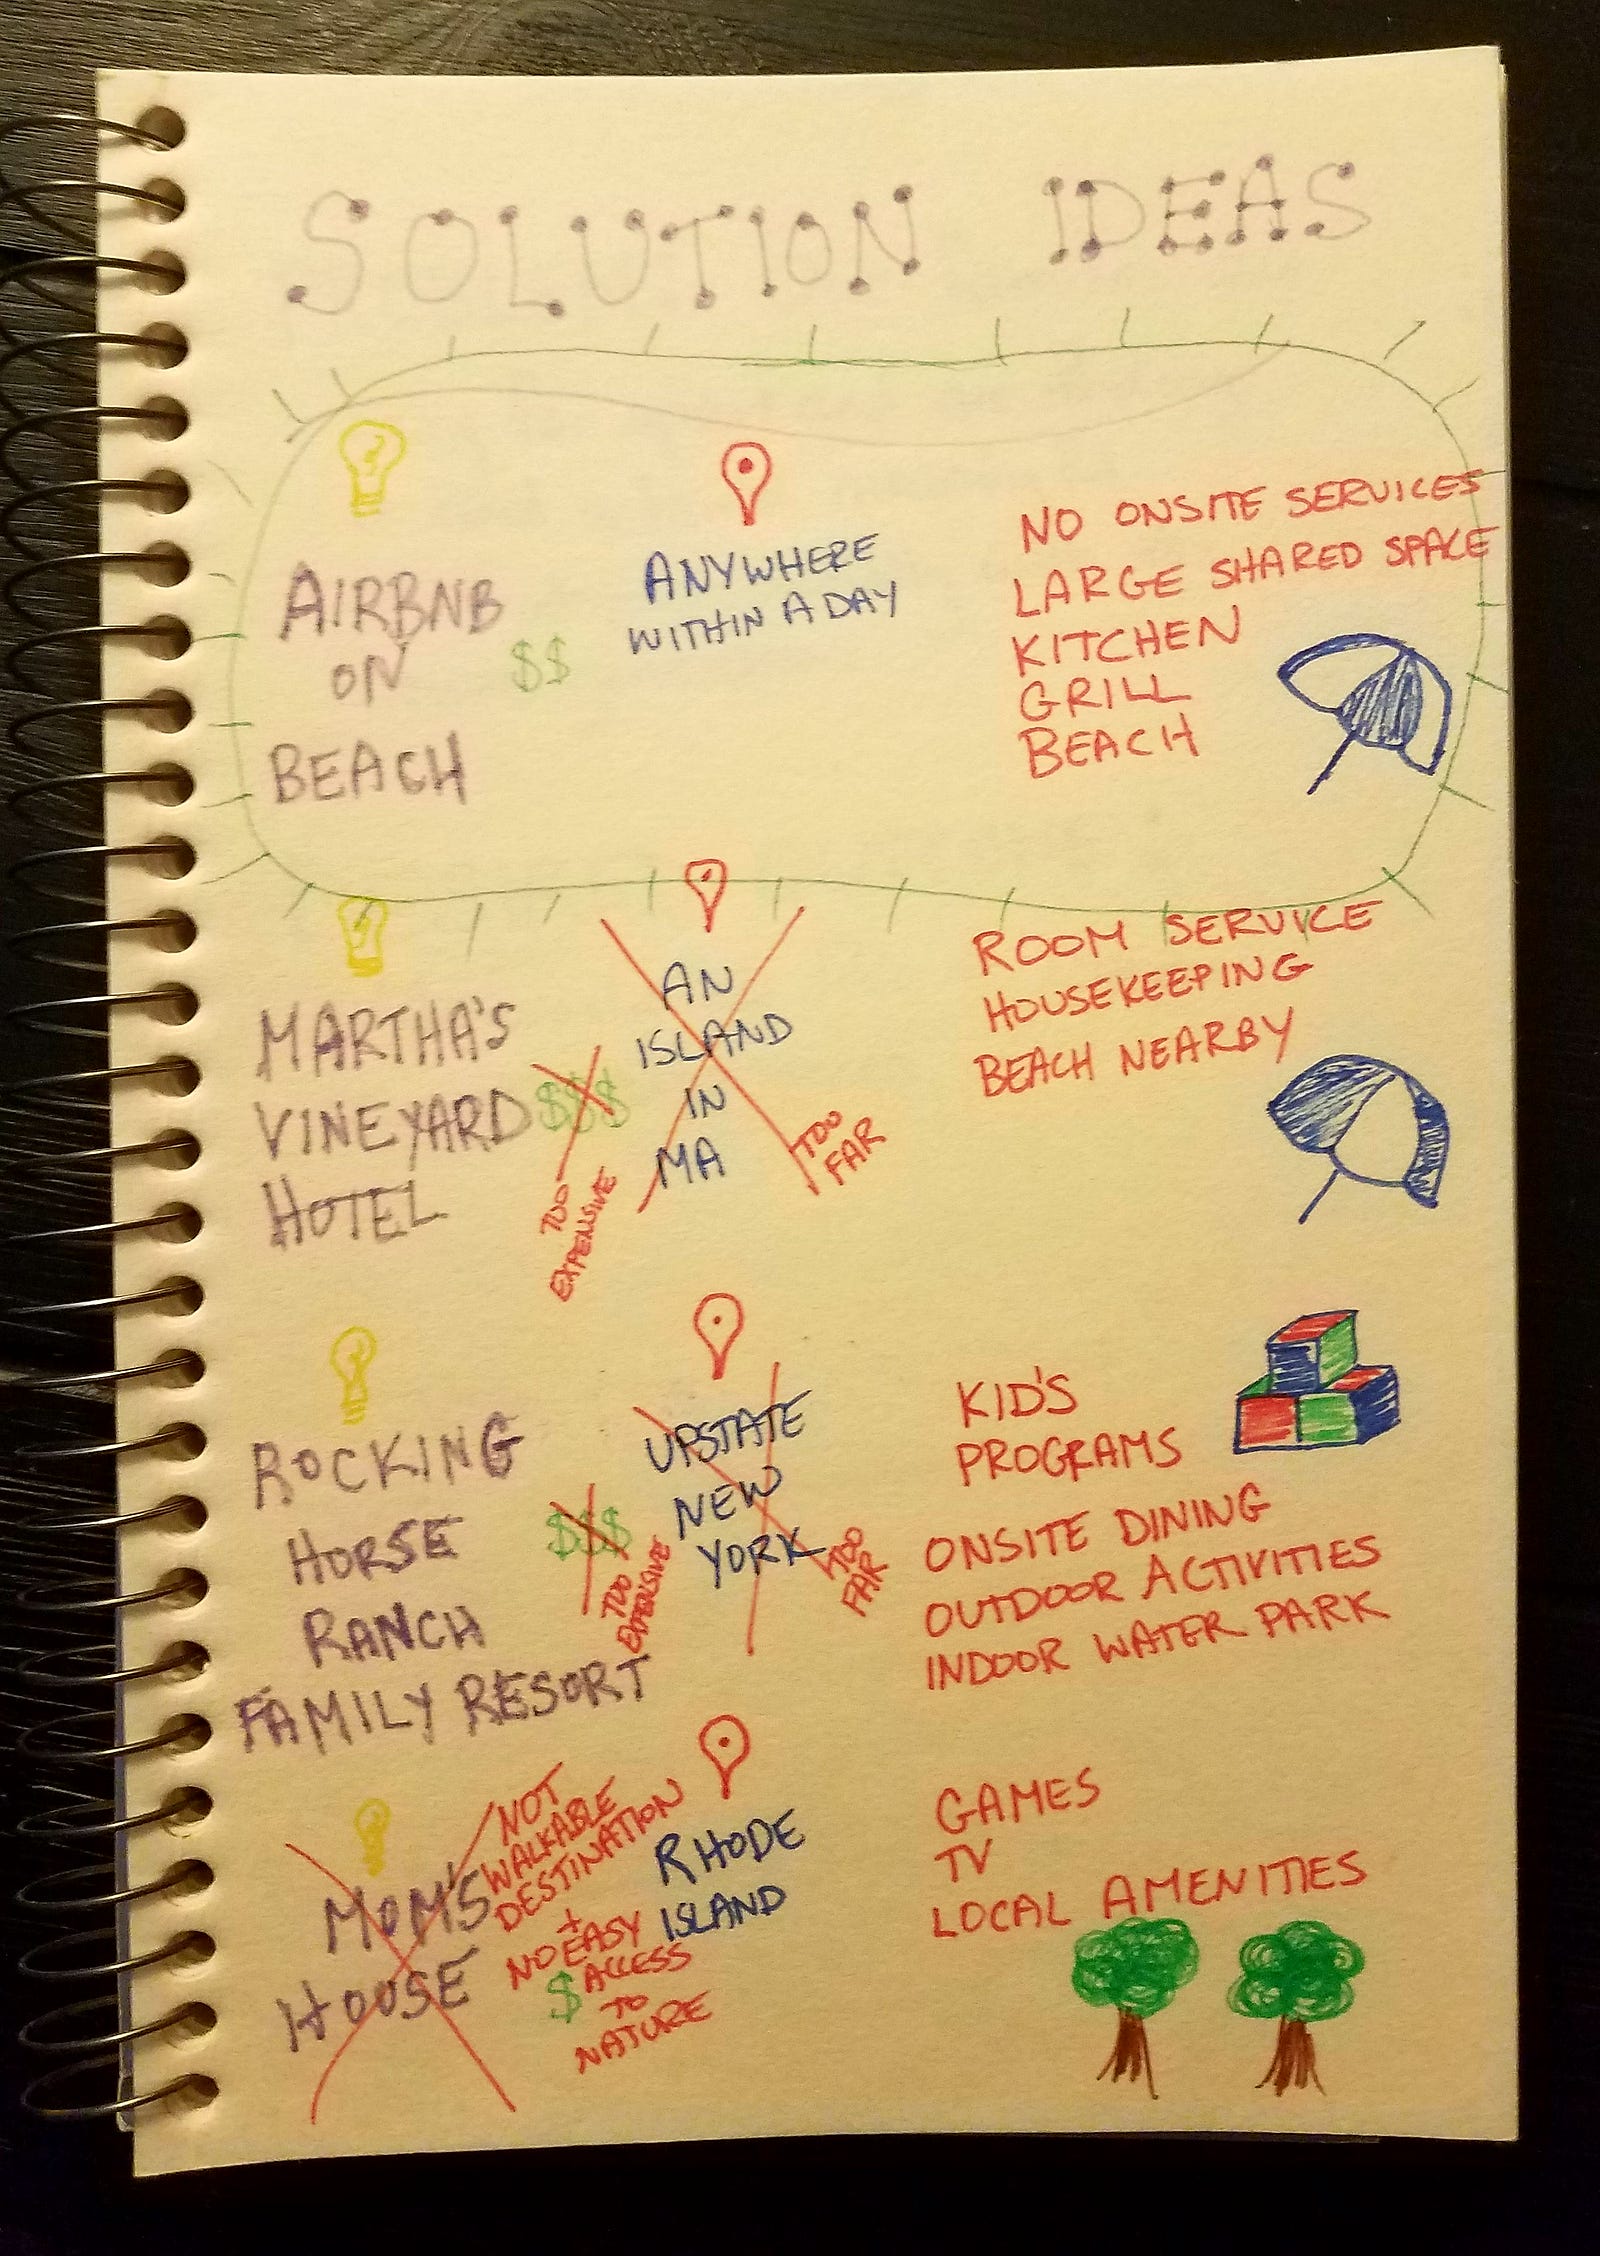 SOLUTION IDEAS
AIRBNB
ON
BEACH
$$
ANYWHERE
WITHIN A DAY
NO ONSITE SERVICES
LARGE SHARED SPACE
KITCHEN
GRILL
BEACH
MARTHA'S
VINEYARD
HOTEL
$$$
TOO
EXPENSIVE
AN
ISLAND
IN
MA
TOO
FAR
ROOM SERVICE
HOUSEKEEPING
BEACH NEARBY
ROCKING
HORSE
RANCH
FAMILY RESORT
$$$
TOO
EXPENSIVE
UPSTATE
NEW
YORK
TOO
FAR
KID'S
PROGRAMS
ONSITE DINING
OUTDOOR ACTIVITIES
INDOOR WATER PARK
MOM'S
HOUSE
NOT
WALKABLE
DESTINATION
+
NO EASY
$ ACCESS
TO
NATURE
RHODE
ISLAND
GAMES
TV
LOCAL AMENITIES